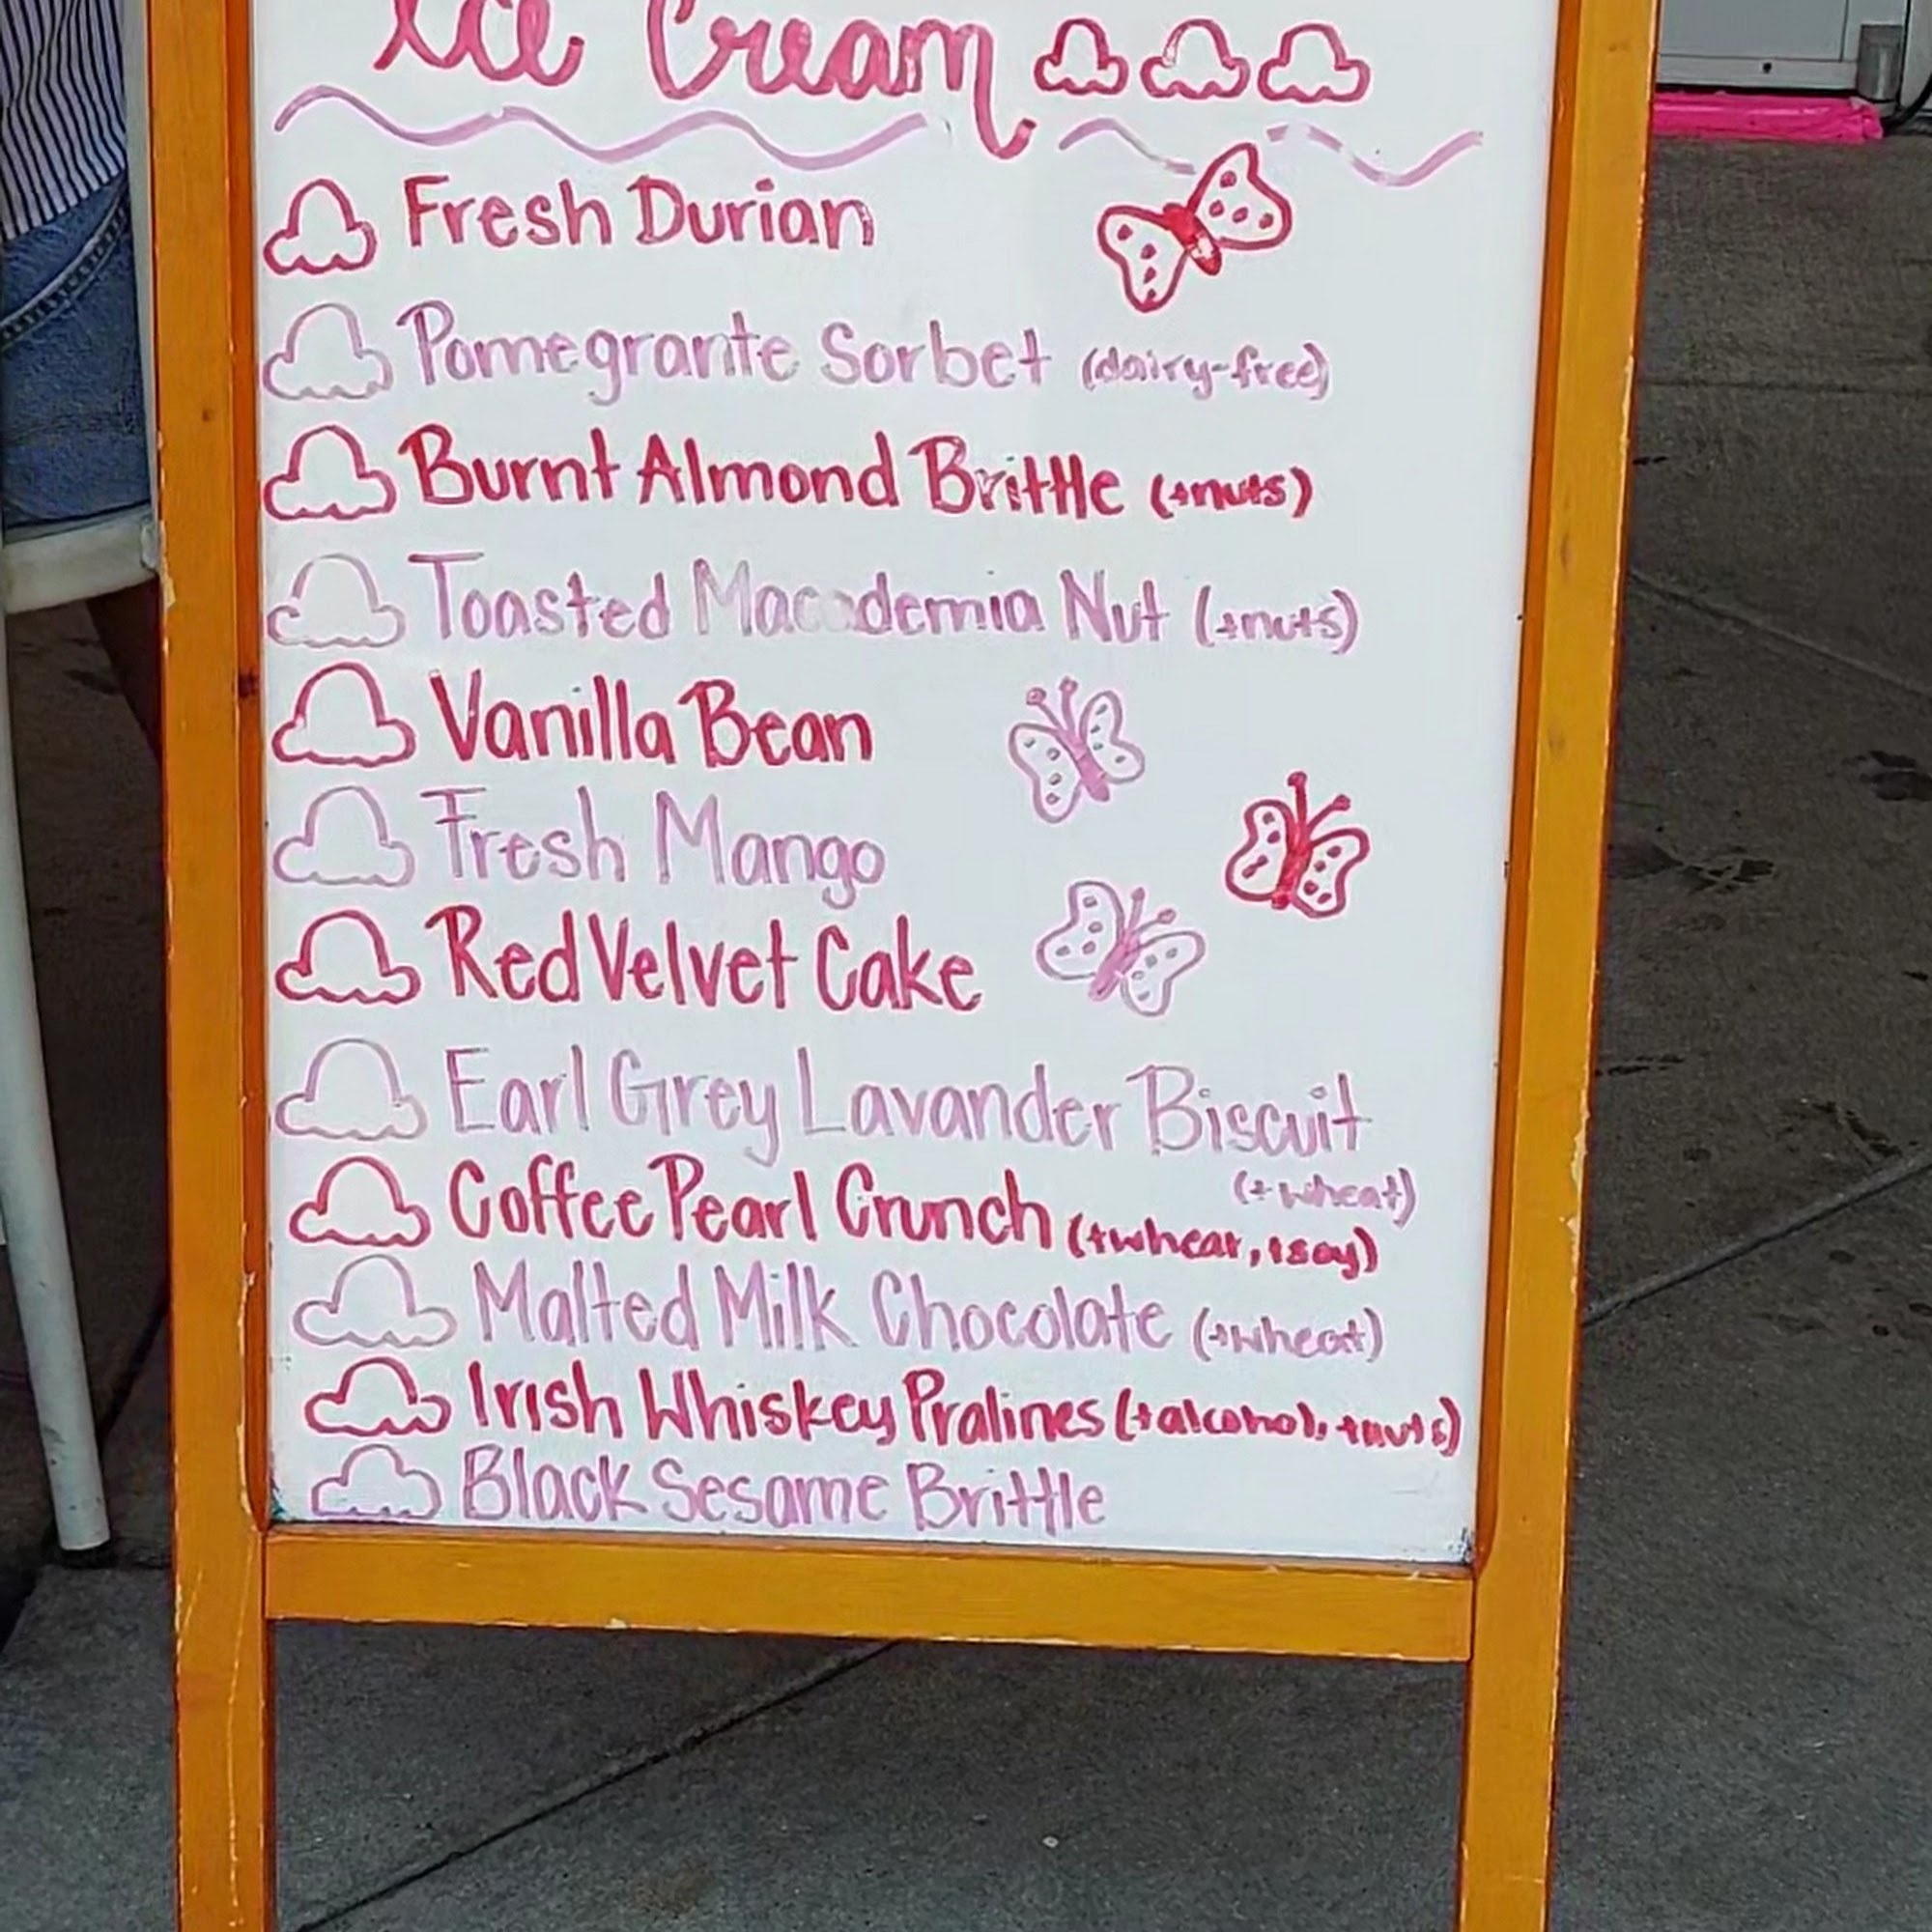 Ice Cream
Fresh Durian
Pomegrante Sorbet (dairy-free)
Burnt Almond Brittle (+nuts)
Toasted Macademia Nut (+nuts)
Vanilla Bean
Fresh Mango
Red Velvet Cake
Earl Grey Lavander Biscuit
(+wheat)
Coffee Pearl Crunch (+wheat, +soy)
Malted Milk Chocolate (+wheat)
Irish Whiskey Pralines (+alcohol, +nuts)
Black Sesame Brittle